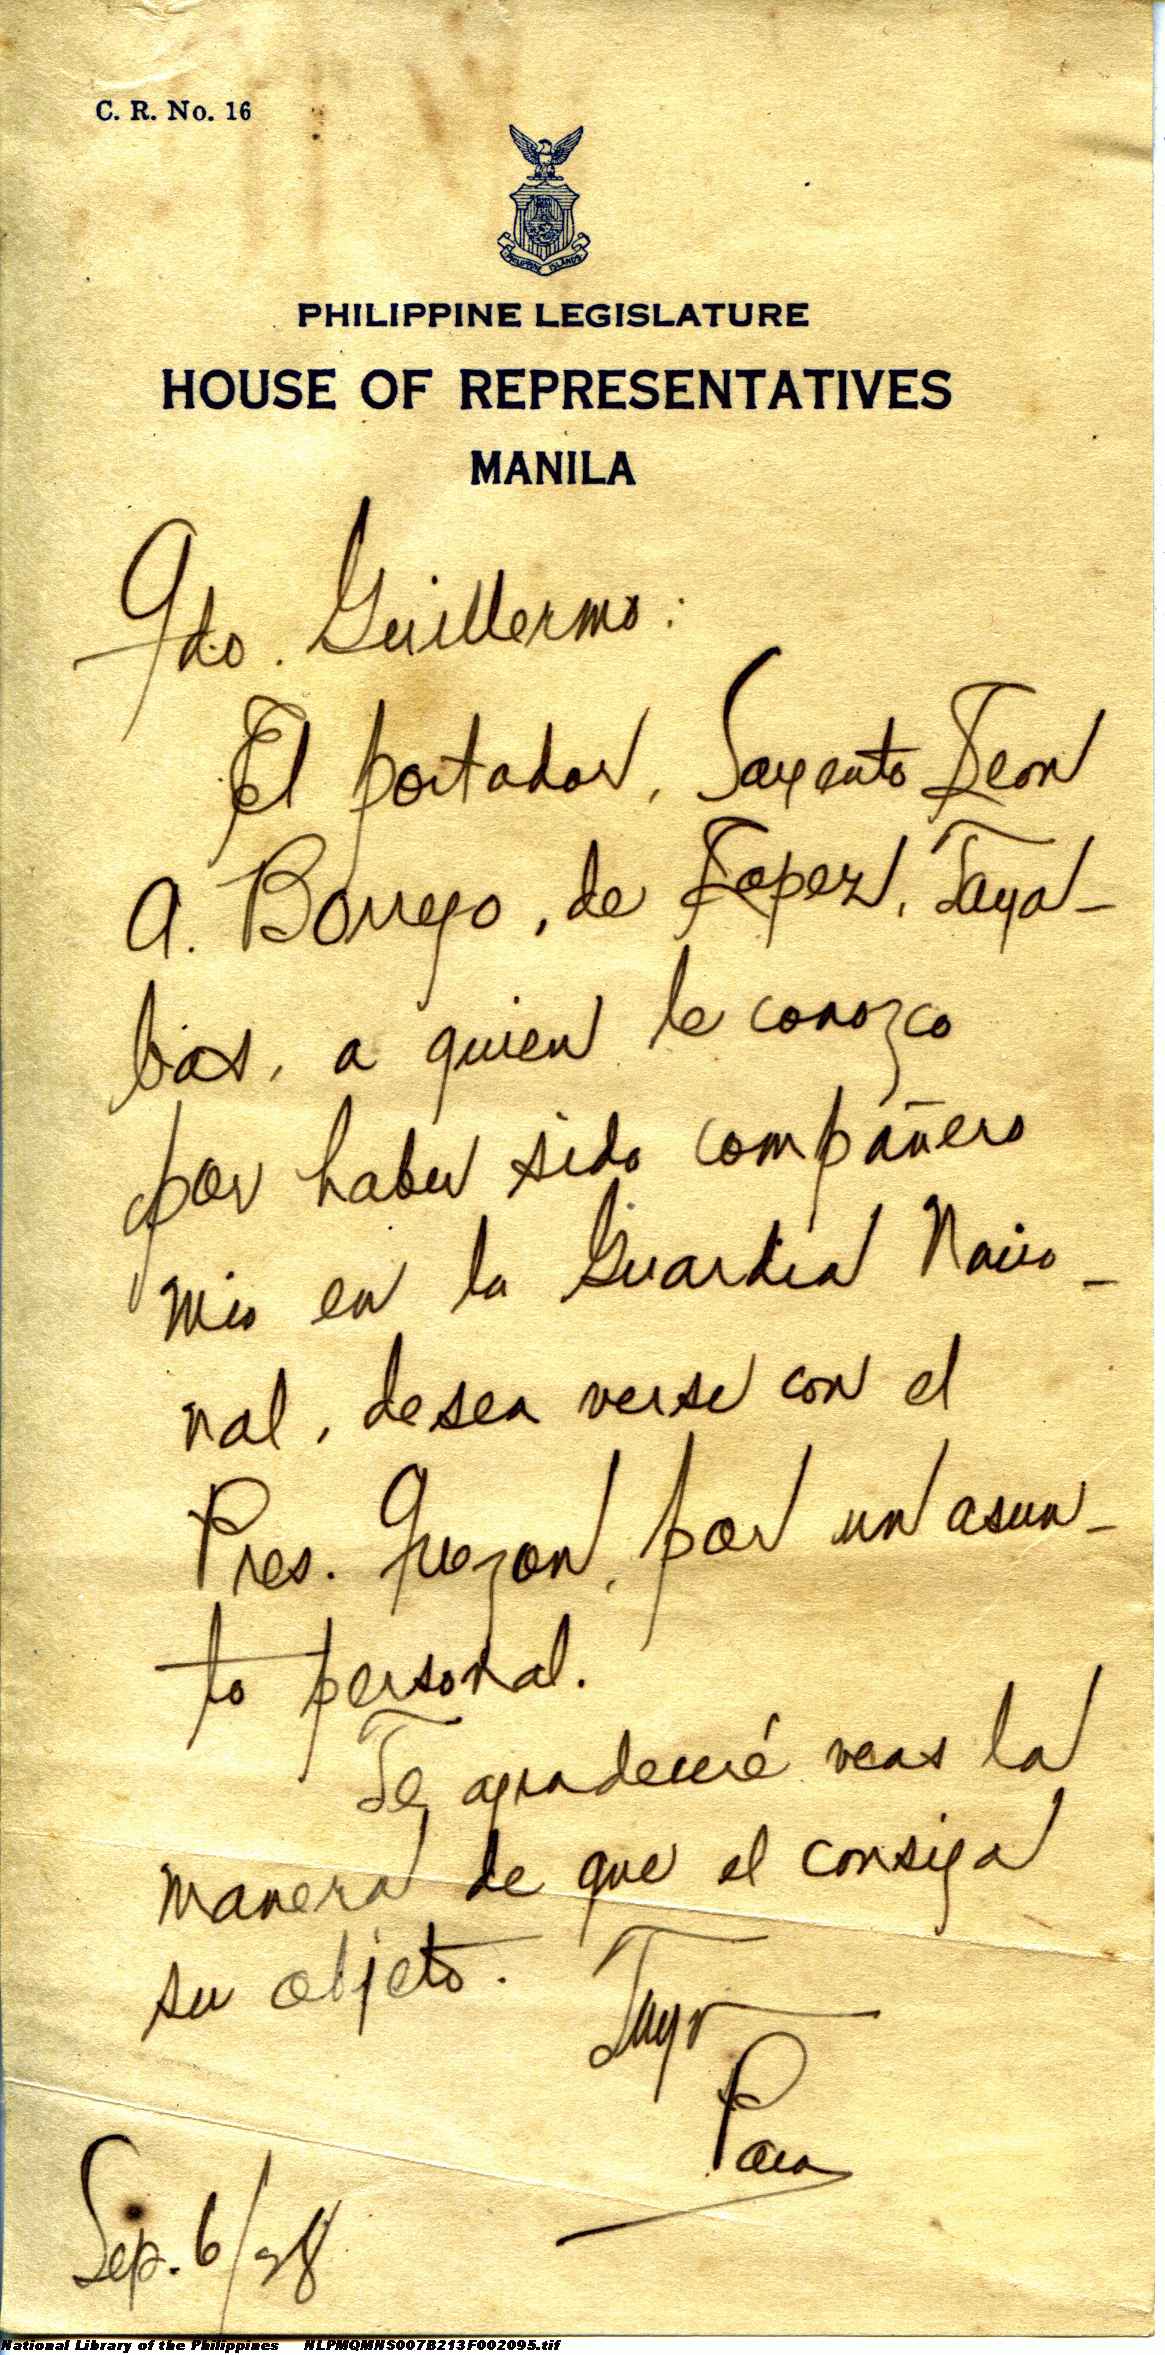 C. R. No. 16
PHILIPPINE ISLANDS
PHILIPPINE LEGISLATURE
HOUSE OF REPRESENTATIVES
MANILA
Qdo. Guillermo:
El portador, Sargento Leon
A. Borrego, de Lopez, Taya-
bas, a quien le conozco
por haber sido compañero
mio en la Guardia Nacio-
nal, desea verse con el
Pres. Quezon, por un asun-
to personal.
Te agradeceré veas la
manera de que el consiga
su objeto.
Tuyo
Sep. 6/28
National Library of the Philippines NLPMQMNS007B213F002095.tif